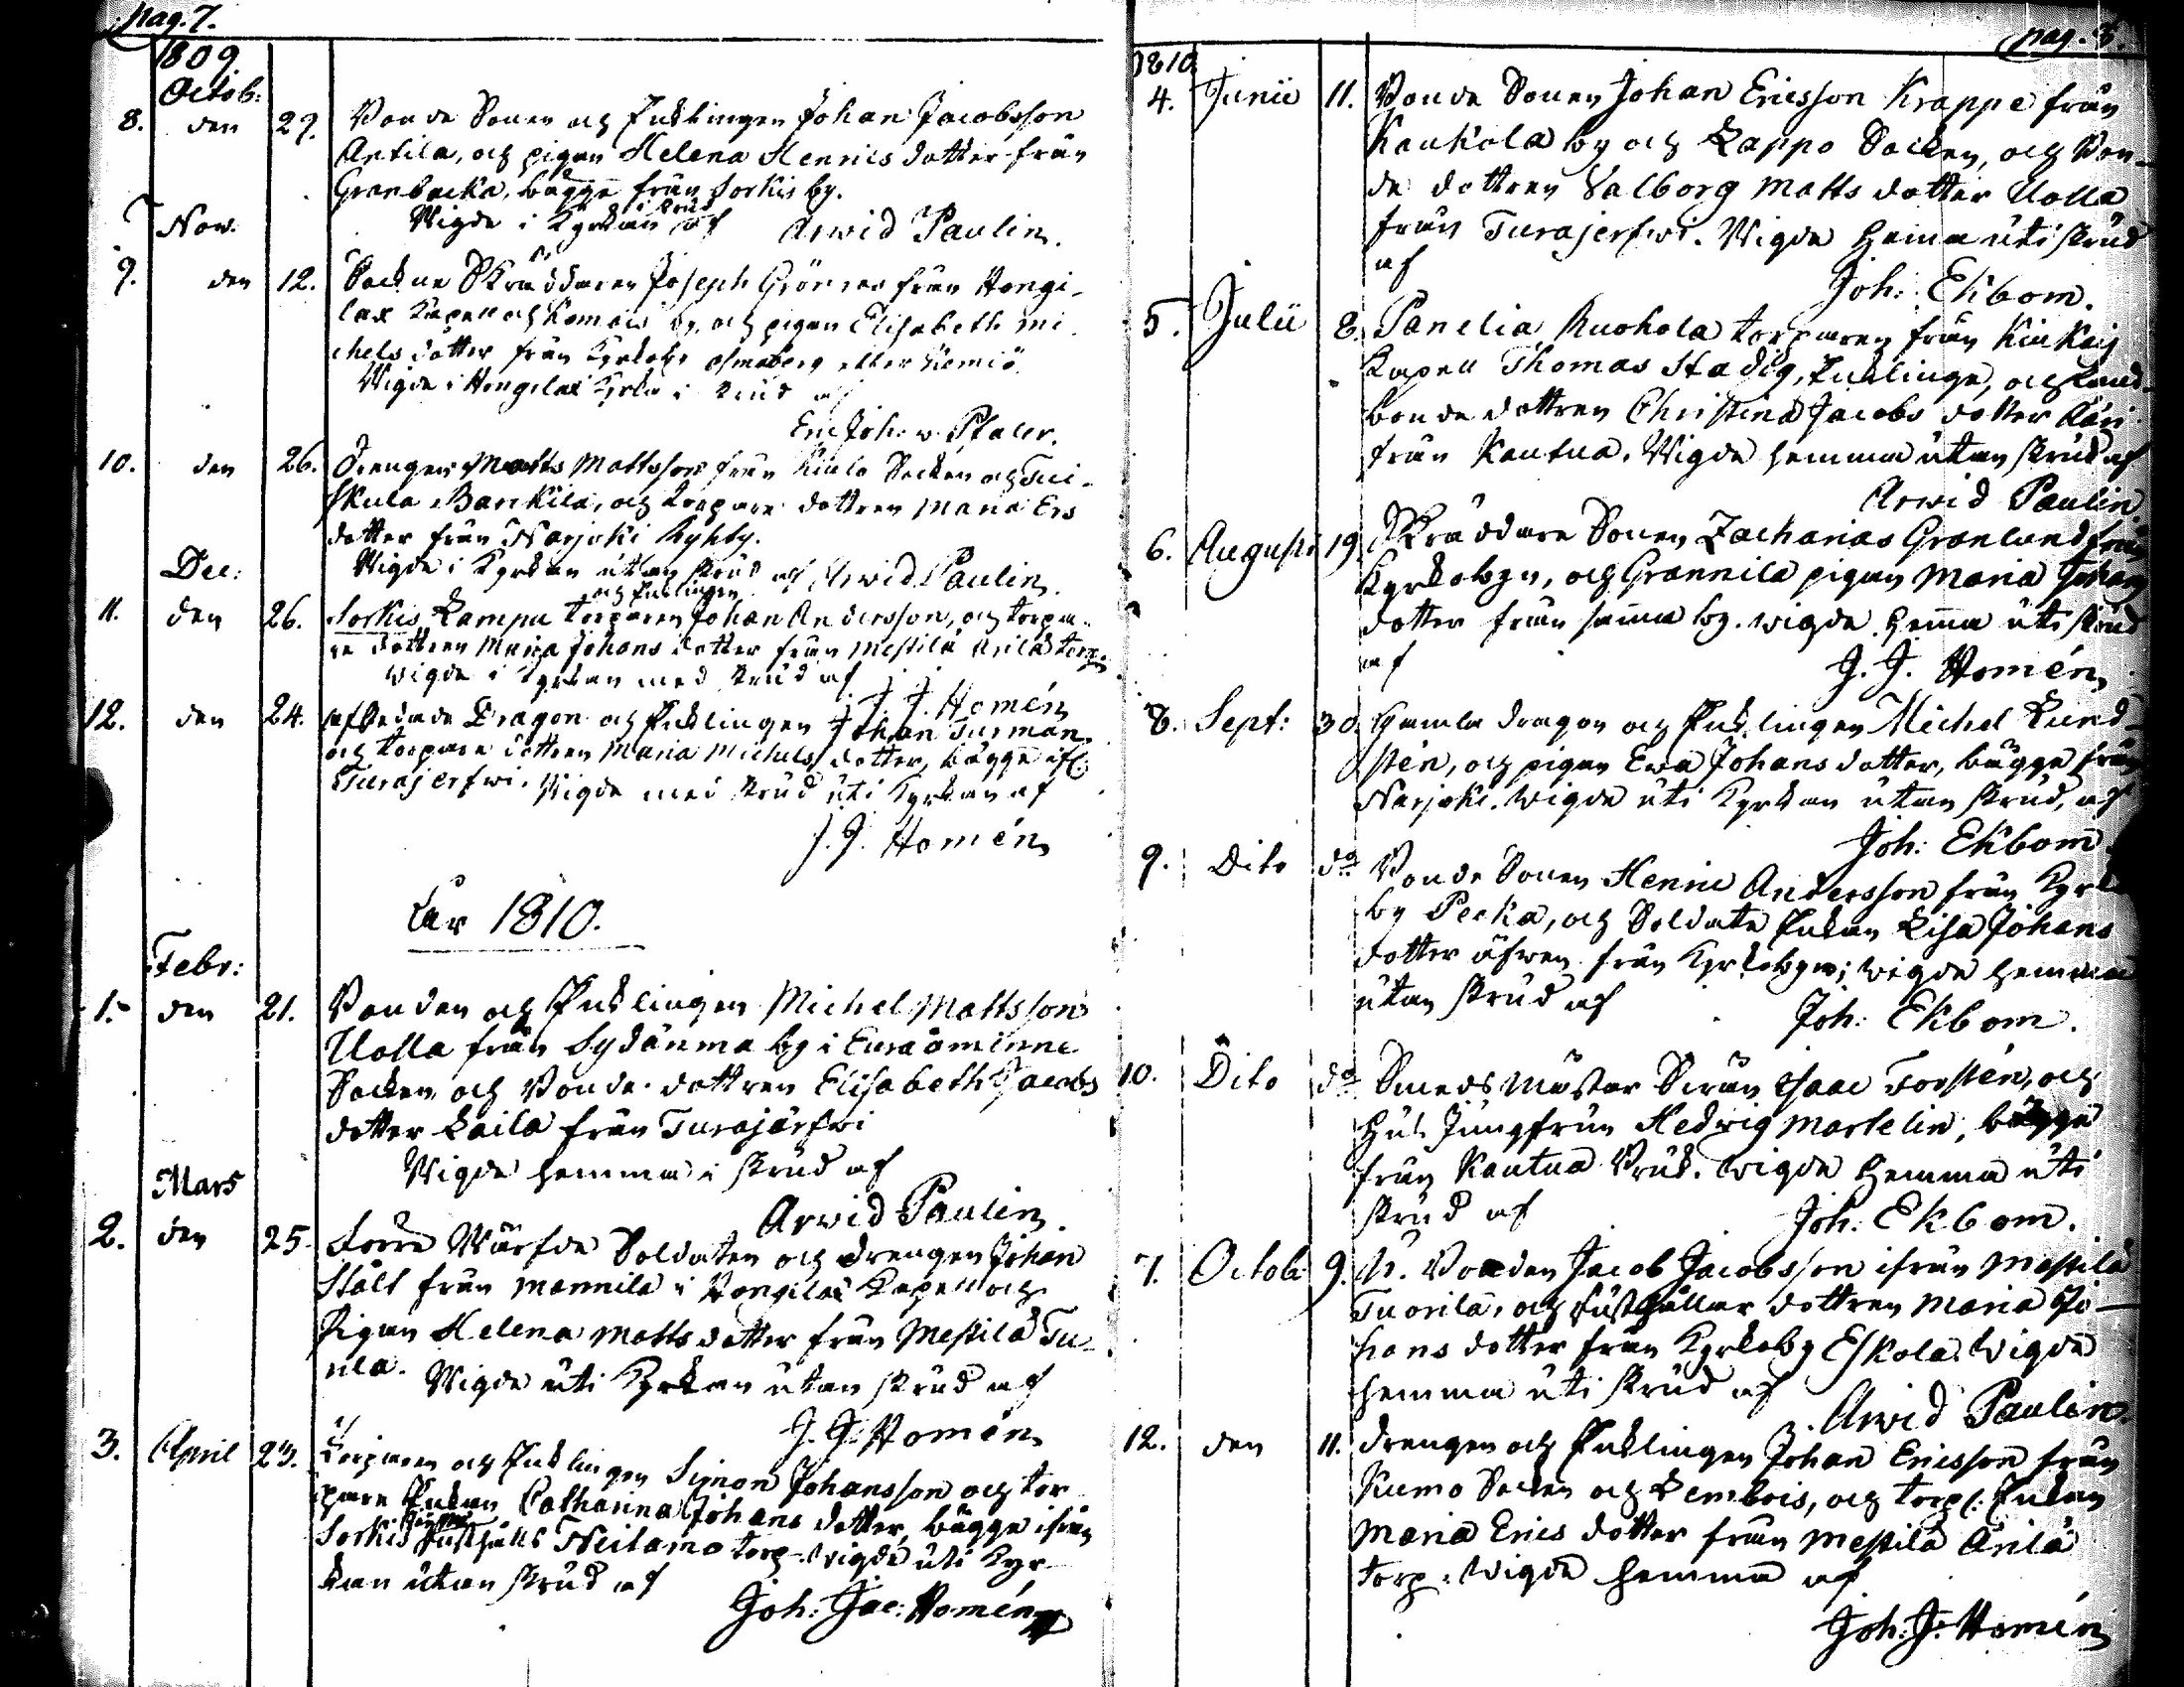 pag. 7.
1809.
Octob:
8. den 29. Bonde Sonen och Enklingen Johan Jacobsson
Antila, och pigan Helena Henrics dotter från
Granbacka, bägge från Sorkis by.
Wigde i Kyrkan i skrud af Arwid Paulin.
Nov.
9. den 12. Sockne Skräddaren Joseph Grönroos från Hongi-
lax Kapell och by, och pigan Elisabeth Mi
chels dotter från Kyrkoby
Wigde i Hongilax Kyrka i skrud af
Eric Joh: v. Pfaler.
10. den 26. Drengen Matts Mattsson från Kiulo Socken och Tui-
skula Barckila, och torpare dottren Maria Ers
dotter från Narjoki Kyhby.
Wigde i Kyrkan utan skrud af Arwid Paulin.
Dec:
och Enklingen
11. den 26. Sorkis Lampu torparen Johan Andersson, och torpa-
re dottren Maria Johans dotter från Mestilä Arilä torp.
wigde i Kyrkan med skrud af
J. J. Homén
12. den 24. afskedade Dragon och Enklingen Johan Turman
och torpare dottren Maria Michels dotter, bägge ifr:
Turajerfwi. Wigde med skrud uti Kyrkan af
J. J. Homén
År 1810.
Febr:
1. den 21. Bonden och Enklingen Michel Mattsson
Uolla från Sydänma by i Euraåminne
Socken och Bonde dottren Elisabeth Jacobs
dotter Laila från Turajärfwi
Wigde hemma i skrud af
Arwid Paulin.
Mars
2. den 25. Förre Wärfde Soldaten och drengen Johan
Stålt från Mannila i Hongilax Kapell och
Pigan Helena Matts dotter från Mestilä Tu-
nla. Wigde uti Kyrkan utan skrud af
J. J. Homén
3. April 23. Torparen och Enklingen Simon Johansson och tor
pare Enkan Catharina Johans dotter, bägge ifrån
Sorkis Rusthålls Neitamo torp. wigde uti Kyr-
kan utan skrud af
Joh: Jac: Homén
pag. 8.
1810.
4. Junii 11. Bonde Sonen Johan Ericsson Krappe från
Kaukola by och Lappo Socken, och Bon-
de dottren Valborg Matts dotter Uolla
från Turajerfwi. Wigde hema uti skrud
af
Joh: Ekbom.
5. Julii 8. Panelia Ruohola torparen från Kiukais
Kapell Thomas Stadig, Enklinge, och Land-
bonde dottren Christina Jacobs dotter
från Kautua. Wigde hemma utan skrud af
Arwid Paulin.
6. Augusti 19. Skräddare Sonen Zacharias Grönlund från
Kyrkobyn, och Grannila pigan Maria Johans
dotter från sama by. wigde hema uti skrud
af
J. J. Homén
8. Sept: 30. Gamla dragon och Enklingen Michel Lund-
stén, och pigan Ewa Johans dotter, bägge från
Narjoki. wigde uti Kyrkan utan skrud, af
Joh: Ekbom.
9. Dito do Bonde Sonen Henric Andersson från Kyrko
by Pecka, och Soldate Enkan Lisa Johans
dotter äfwen från Kyrkobyn; wigde hemma
utan skrud af
Joh: Ekbom.
10. Dito do Smeds Mästar Swän Isaac Forstén, och
Hus Jungfrun Hedwig Martelin, bägge
från Kautua Bruk. wigde hemma uti
skrud af
Joh: Ekbom.
7. Octob: 9. N. Bonden Jacob Jacobsson ifrån Mestilä
Tuorila, och Rusthållar dottren Maria Jo-
hans dotter från Kyrkoby Eskola. Wigde
hemma uti skrud af
Arwid Paulin.
12. den 11. drengen och Enklingen Johan Ericsson från
Kumo Socken och Lembois, och torp: Enkan
Maria Erics dotter från Mestilä Arilä
torp. Wigde hemma af
Joh: J: Homén